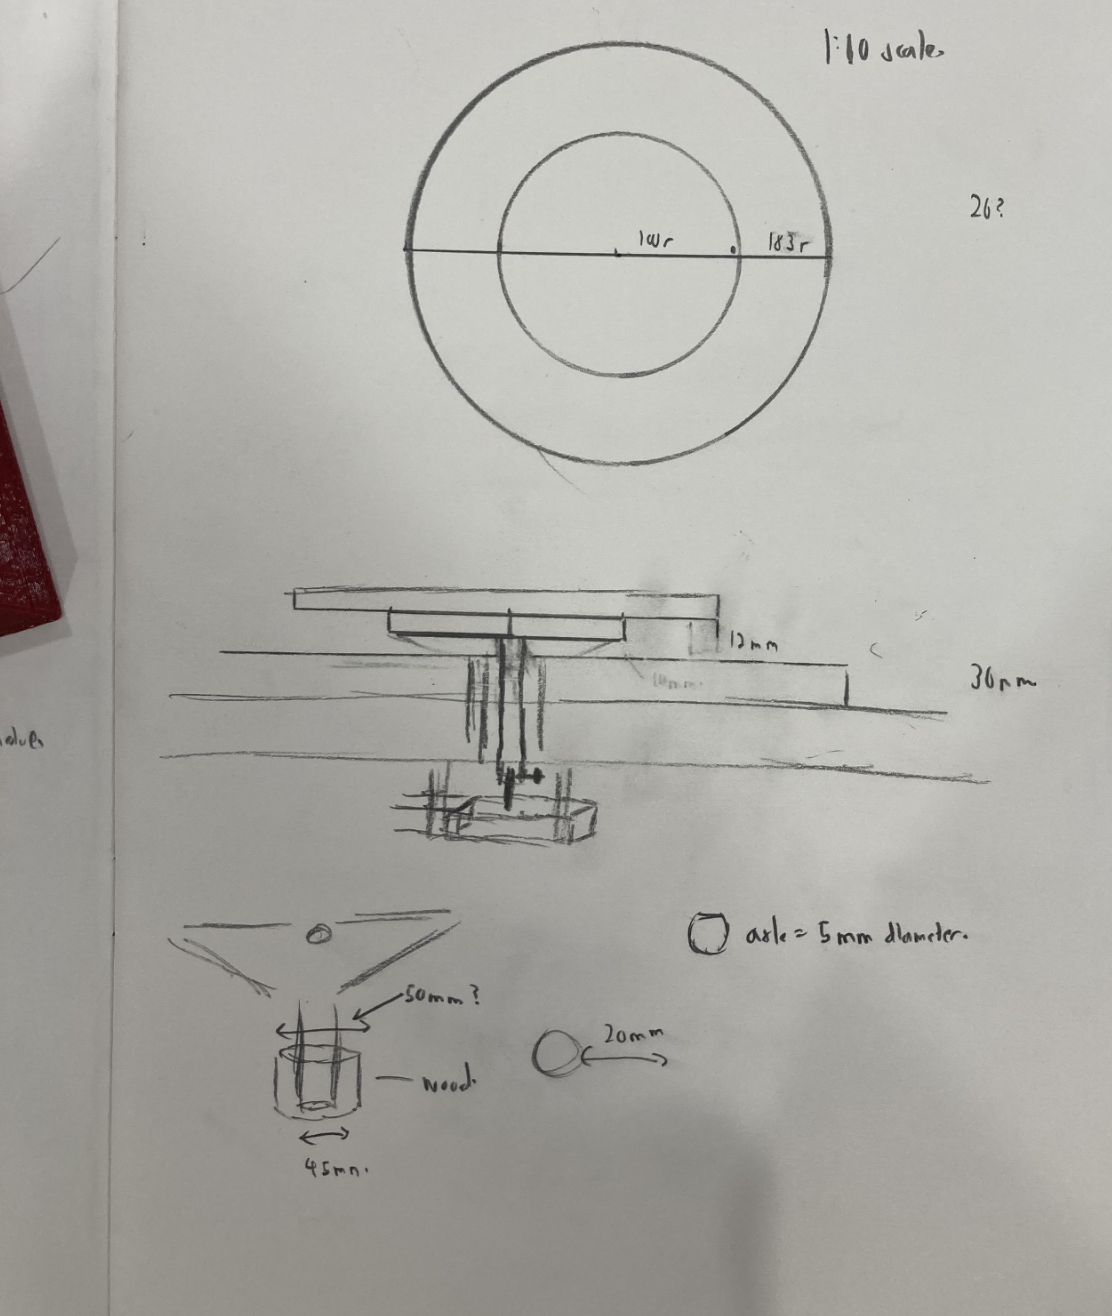 1:10 scale
26?
100r
183r
12mm
10mm.
30mm
axle = 5mm diameter.
50mm?
20mm
wood.
45mm.